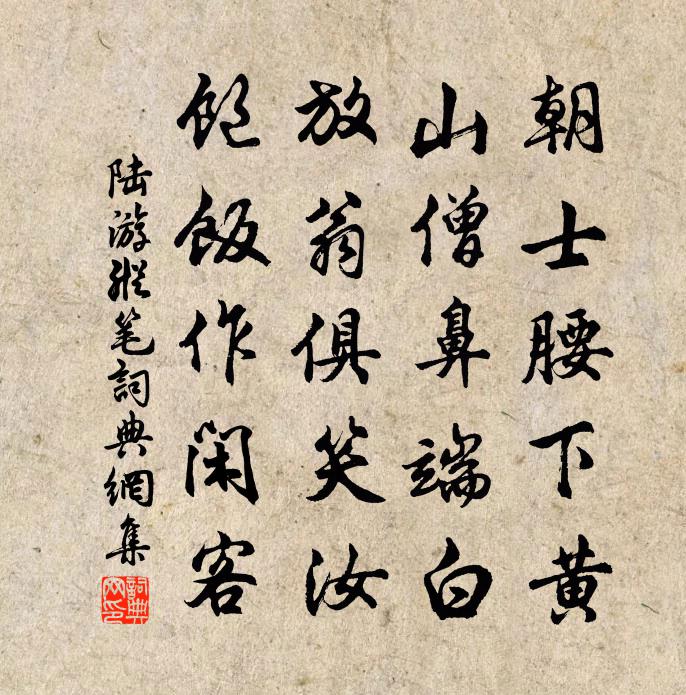 朝士腰下黄
山僧鼻端白
放翁俱笑汝
飽飯作閑客
陆游縱笔詞典網集
詞典网印